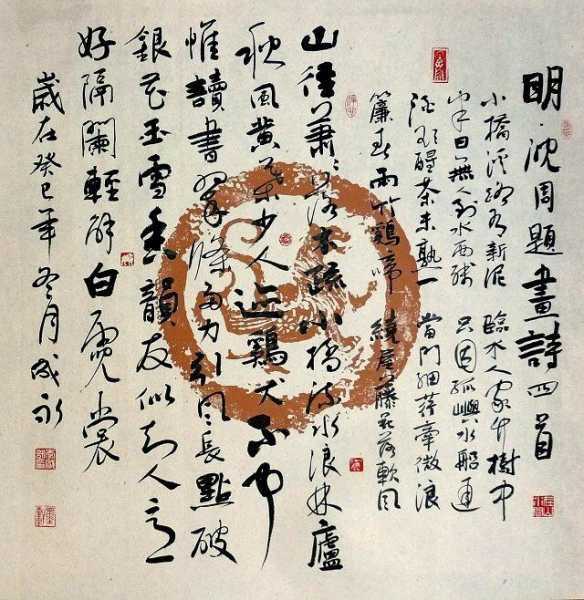 明·沈周題畫詩四首
小橋溪路有新泥 臨水人家竹樹中
半日無人到水西殘 只因孤嶼水船通
酒欲醒茶未熟一 當門細荇牽微浪
簾春雨竹鷄啼 繞屋藤花落軟風
山徑蕭蕭落木疏小橋流水浪林廬
秋風黄葉少人迹鷄犬不中
惟讀書翠條多力引風長點破
銀花玉雪香韻友似知人意
好隔闌輕解白霓裳
歲在癸巳年冬月成永